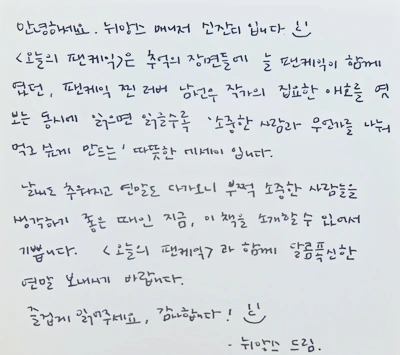 안녕하세요. 뉘앙스 매니저 신잔디 입니다
<오늘의 팬케익>은 추억의 장면들에 늘 팬케익이 함께
였던, 팬케익 찐 러버 남선우 작가의 집요한 애호를 엿
보는 동시에 읽으면 읽을수록 '소중한 사람과 무언가를 나눠
먹고 싶게 만드는' 따뜻한 에세이 입니다.
날씨도 추워지고 연말도 다가오니 부쩍 소중한 사람들을
생각하기 좋은 때인 지금, 이 책을 소개할 수 있어서
기쁩니다. <오늘의 팬케익>과 함께 달콤폭신한
연말 보내시기 바랍니다.
즐겁게 읽어주세요, 감사합니다!
- 뉘앙스 드림.